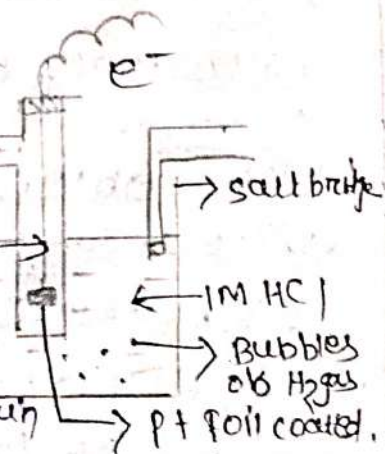 e⁻
→ salt bridge
← 1M HCl
→ Bubbles
ob H₂gas
→ pt foil coated.